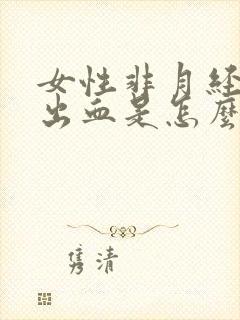 女性非月经
出血是怎麽
隽清